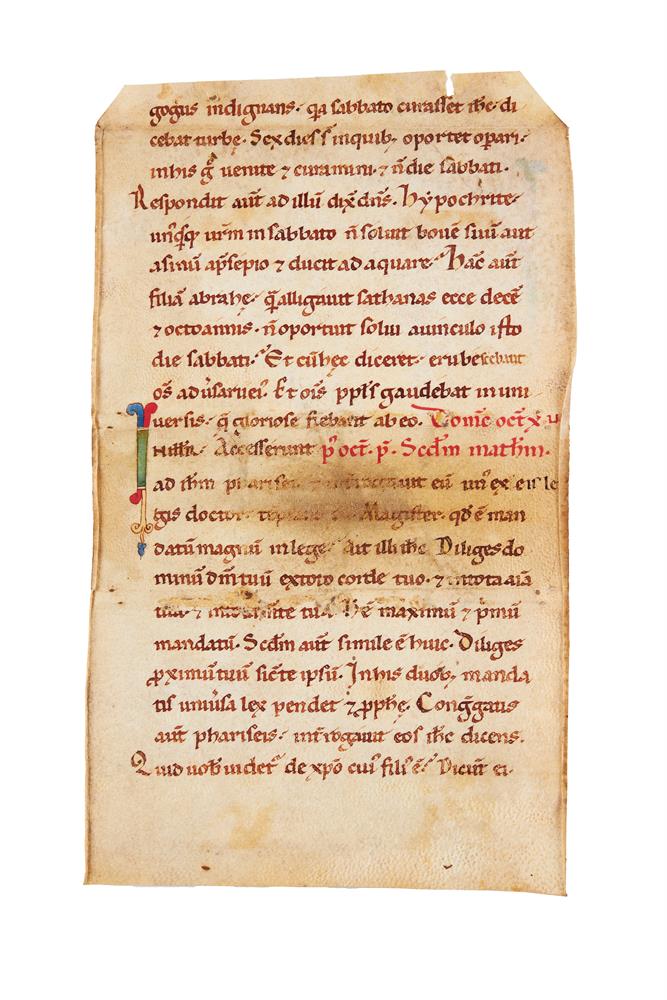 gogus indignans. q̄a sabbato curasset ih̄c. di
cebat turbę. Sex dies s̄ in quib; oportet op̄ari.
in his g̊ venite ⁊ curamini. ⁊ n̄ die sabbati.
Respondit aut̄ ad illū dix̄ dn̄s. hypochrite.
un̄q̄sq; ur̄m in sabbato n̄ soluit bouē suū aut
asinū ap̄sepio ⁊ ducit ad aquare. hāc aut̄
filiā abrahę. q̄ alligauit sathanas ecce decē
⁊ octo annis. n̄ oportuit solui a uinculo isto
die sabbati. Et cū hęc diceret. erubescebant
om̄s aduˀsarii eiˀ. Et om̄is ppl̄s gaudebat in uni
uersis. q̄ gloriose fiebant ab eo. Domīc oct̄. x
Accesserunt p̊ oct̄. p̄. Scd̄m math̄m.
ad ih̄m pharisei. ⁊ int̄rogauit eū unˀ ex eis le
gis doctor. Magister. qd̄ ē man
datū magnū in lege. Ait illi ih̄c. Diliges do
minū dm̄ tuū ex toto corde tuo. ⁊ in tota aīa
tua. ⁊ in tota m̄te tua. hē maximū ⁊ p̄mū
mandatū. Scd̄m aut̄ simile ē huic. Diliges
ꝓximū tuū sic̄ te ipsū. In his duob; manda
tis uniuˀsa lex pendet ⁊ ꝓphę. Cong̅gatis
aut̄ phariseis. int̄rogauit eos ih̄c dicens.
Quid uob̄ uidet᷑ de xp̄o cuiˀ filiˀ ē. Dicūt ei.